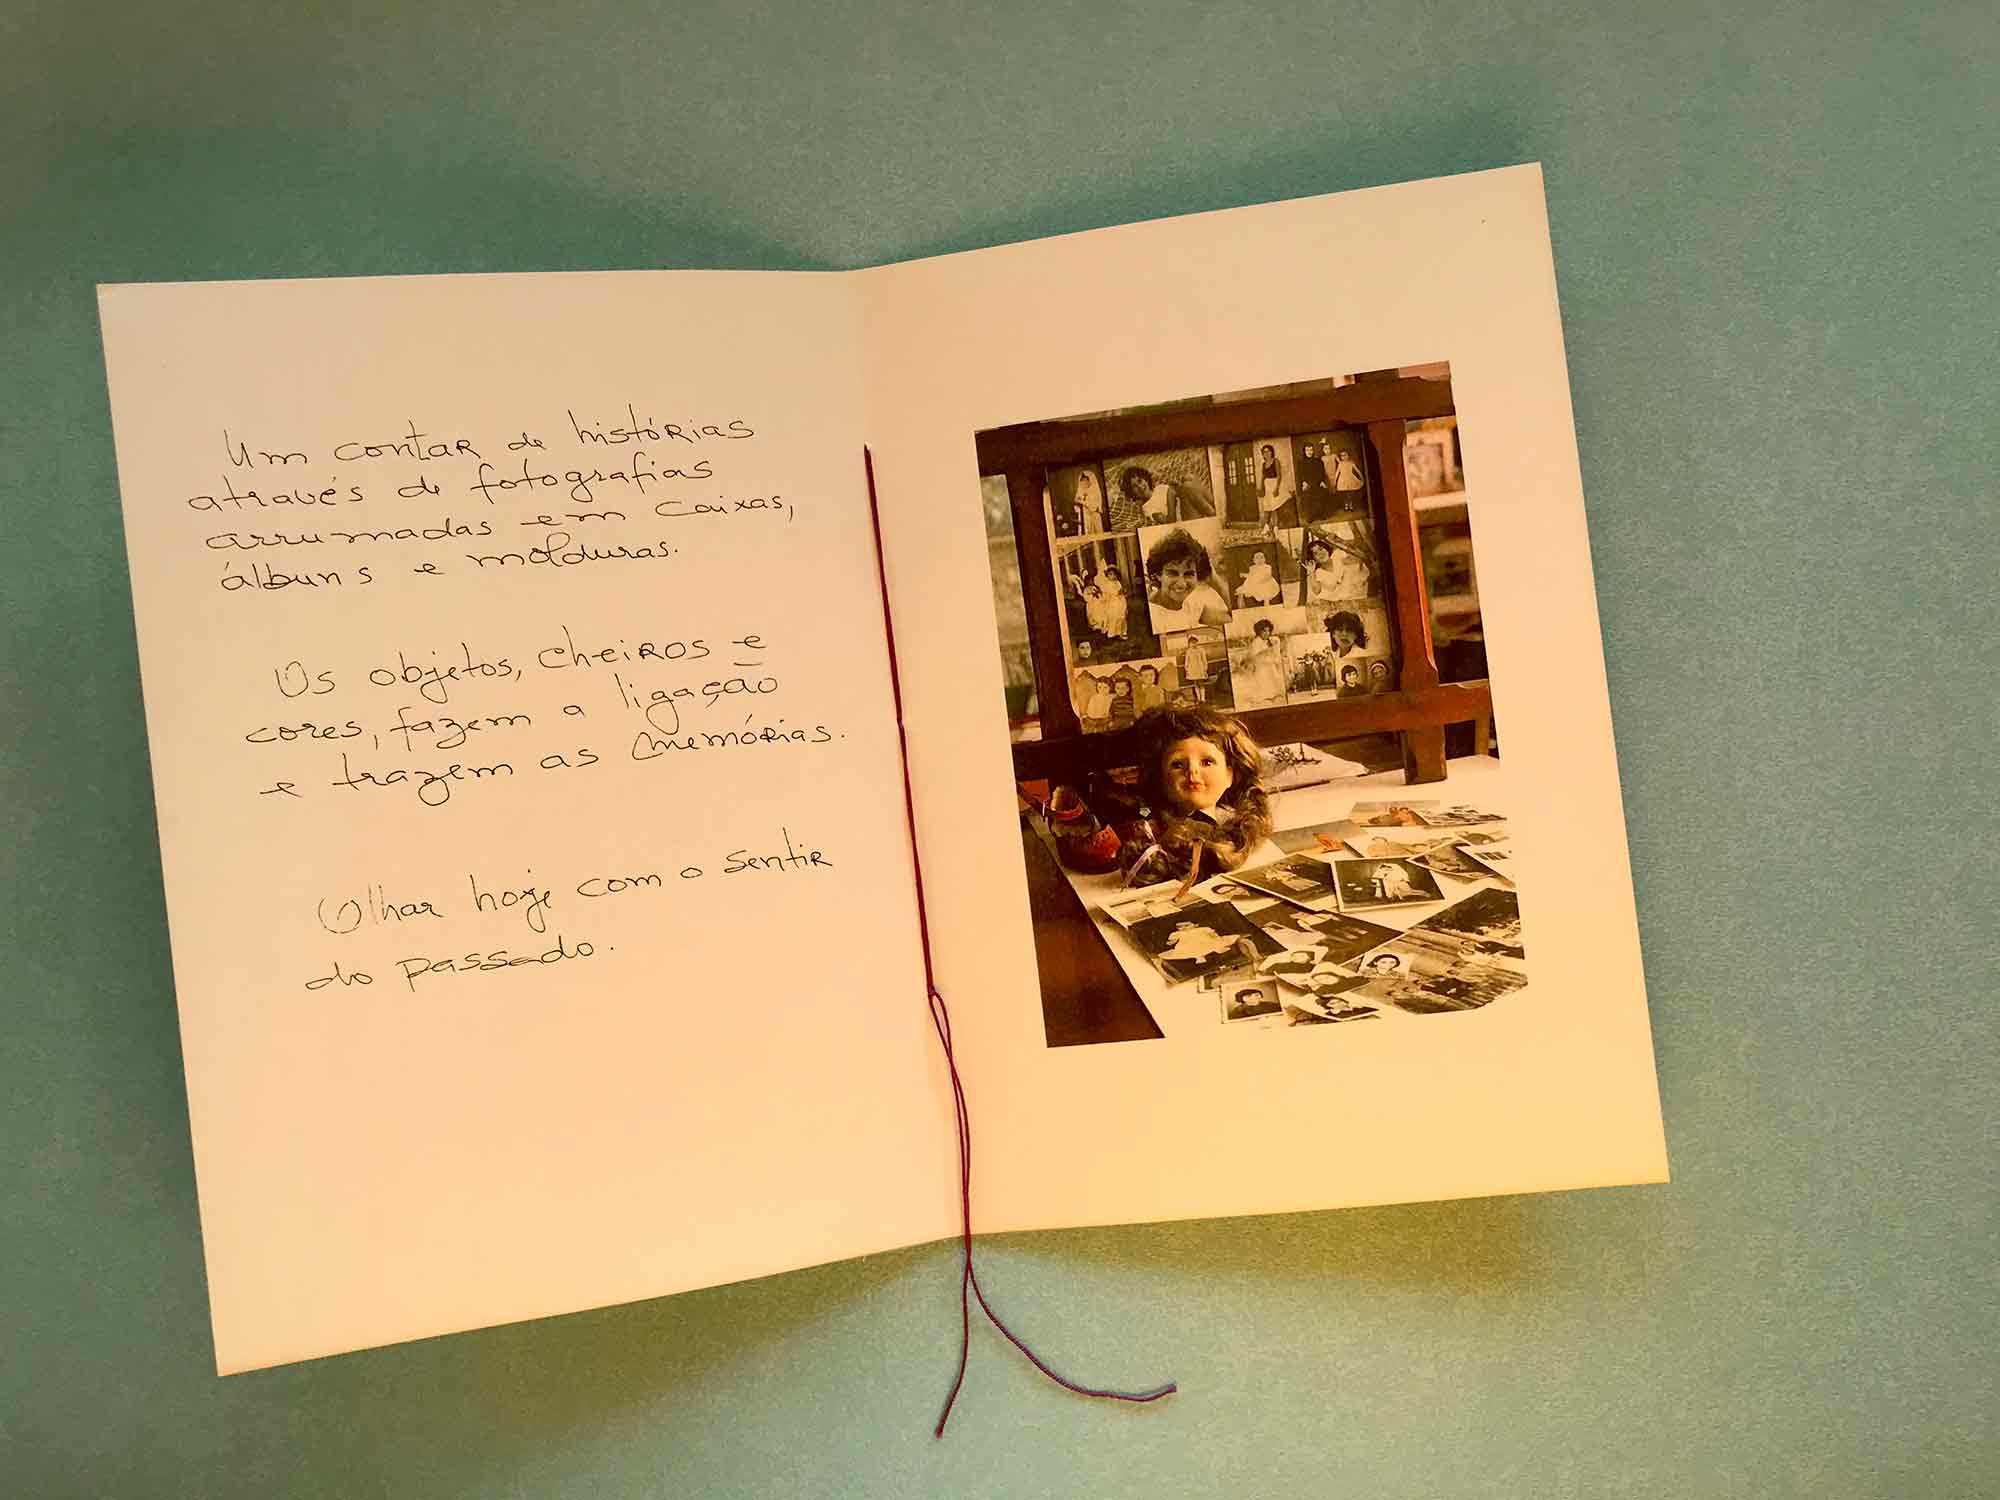 Um contar de histórias
através de fotografias
arrumadas em caixas,
álbuns e molduras.
Os objetos, cheiros e
cores, fazem a ligação
e trazem as memórias.
Olhar hoje com o sentir
do passado.